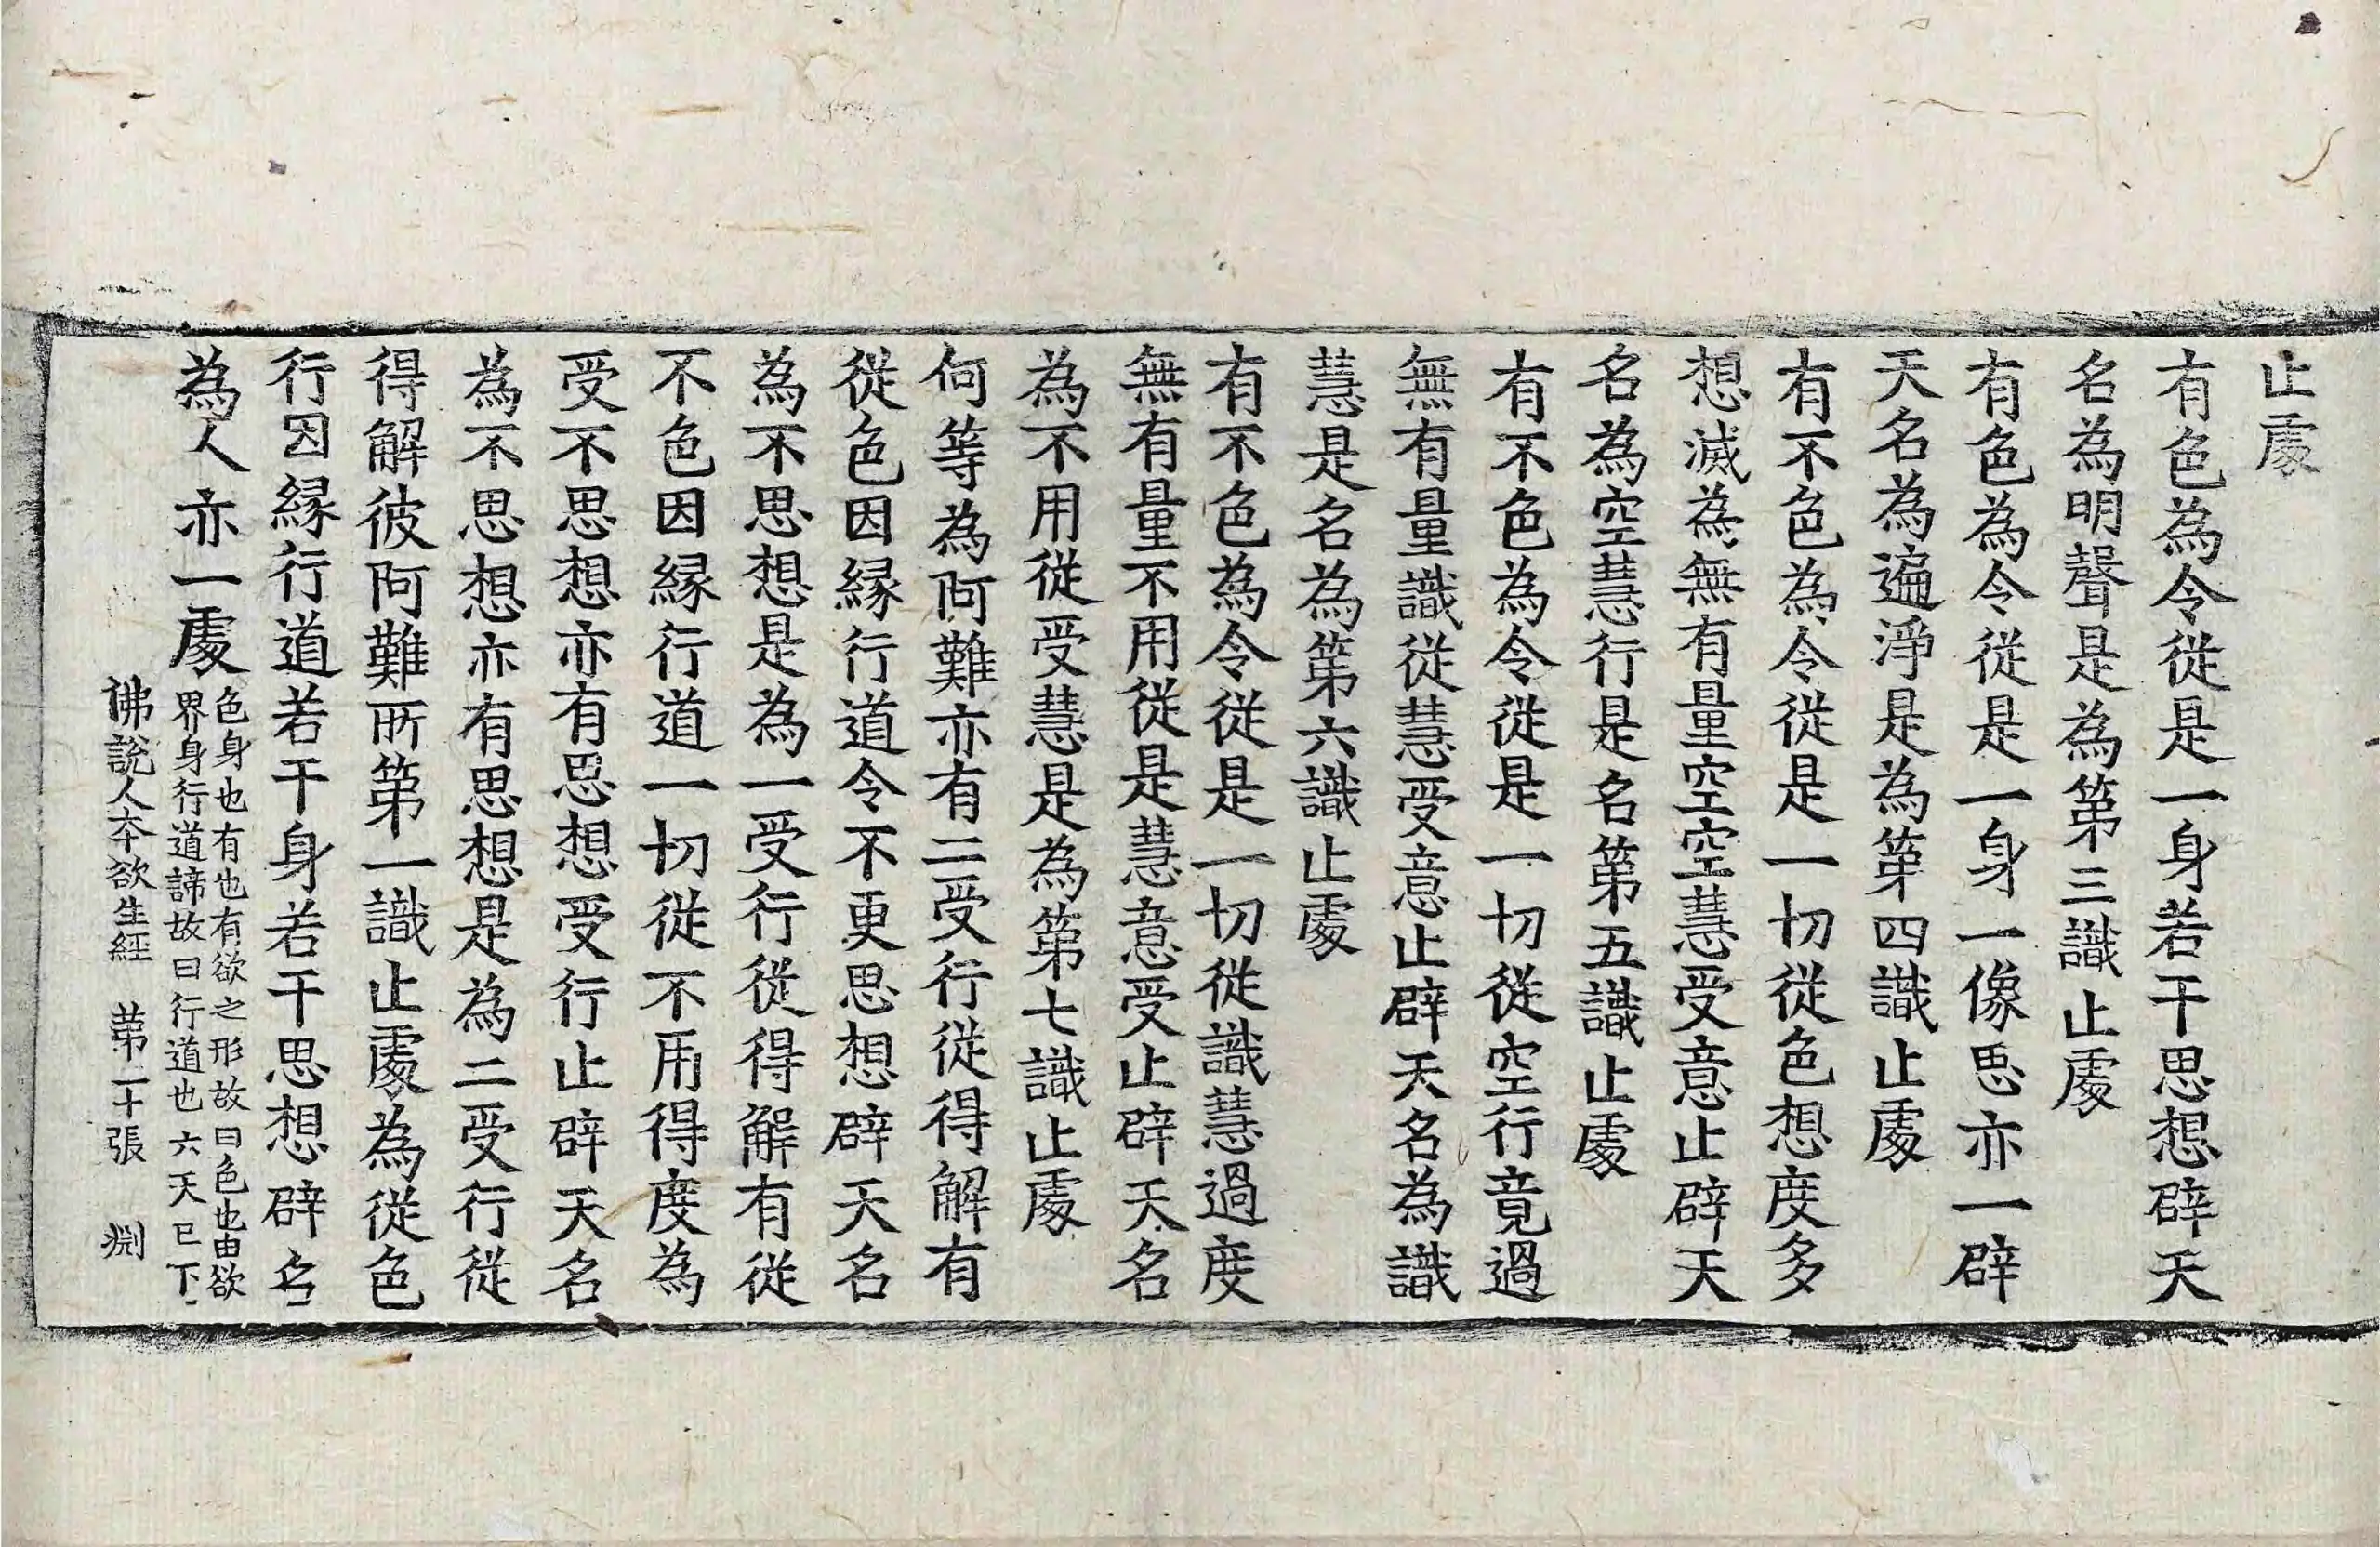 止處
有色為令從是一身若干思想辟天
名為明聲是為第三識止處
有色為令從是一身一像思亦一辟
天名為遍淨是為第四識止處
有不色為令從是一切從色想度多
想滅為無有量空空慧受意止辟天
名為空慧行是名第五識止處
有不色為令從是一切從空行竟過
無有量識從慧受意止辟天名為識
慧是名為第六識止處
有不色為令從是一切從識慧過度
無有量不用從是慧意受止辟天名
為不用從受慧是為第七識止處
何等為阿難亦有二受行從得解有
從色因緣行道令不更思想辟天名
為不思想是為一受行從得解有從
不色因緣行道一切從不用得度為
受不思想亦有思想受行止辟天名
為不思想亦有思想是為二受行從
得解彼阿難所第一識止處為從色
行因緣行道若干身若干思想辟名
為人亦一處
色身也有也有欲之形故曰色也由欲
界身行道諦故曰行道也六天已下
佛說人本欲生經 第二十張 淵